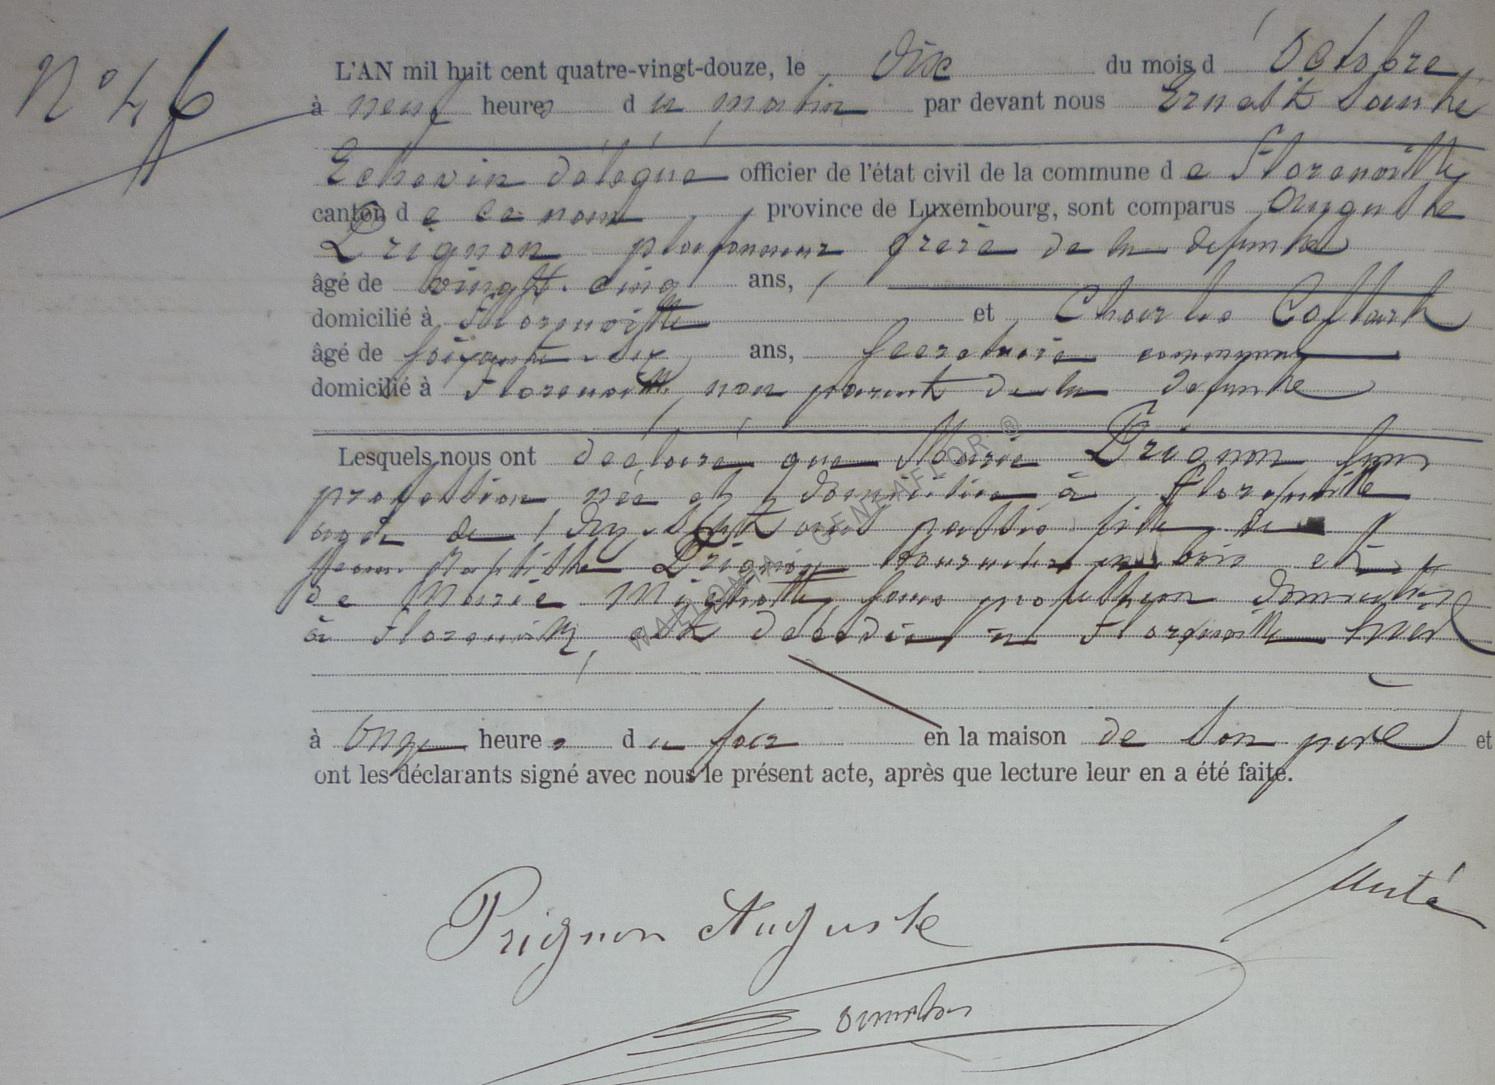 N° 46
L'AN mil huit cent quatre-vingt-douze, le dix du mois d'Octobre
à neuf heures du matin par devant nous Ernest
Echevin délégué officier de l'état civil de la commune de Florenville
canton de ce nom, province de Luxembourg, sont comparus Auguste
Prignon plafonneur frère de la defunte
âgé de vingt-cinq ans,
domicilié à Florenville et Charles Collard
âgé de soixante-six ans, secretaire communal
domicilié à Florenville, non parent de la defunte
Lesquels nous ont déclaré que Marie Prignon sans
profession née et domiciliée à Florenville
agée de dix-sept ans passés fille de
Jean Baptiste Prignon tourneur en bois et
de Marie sans profession domiciliés
à Florenville, est décédée à Florenville hier
à onze heures du soir en la maison de son père et
ont les déclarants signé avec nous le présent acte, après que lecture leur en a été faite.
Prignon Auguste
WALLONIA GENEAFLOR ©